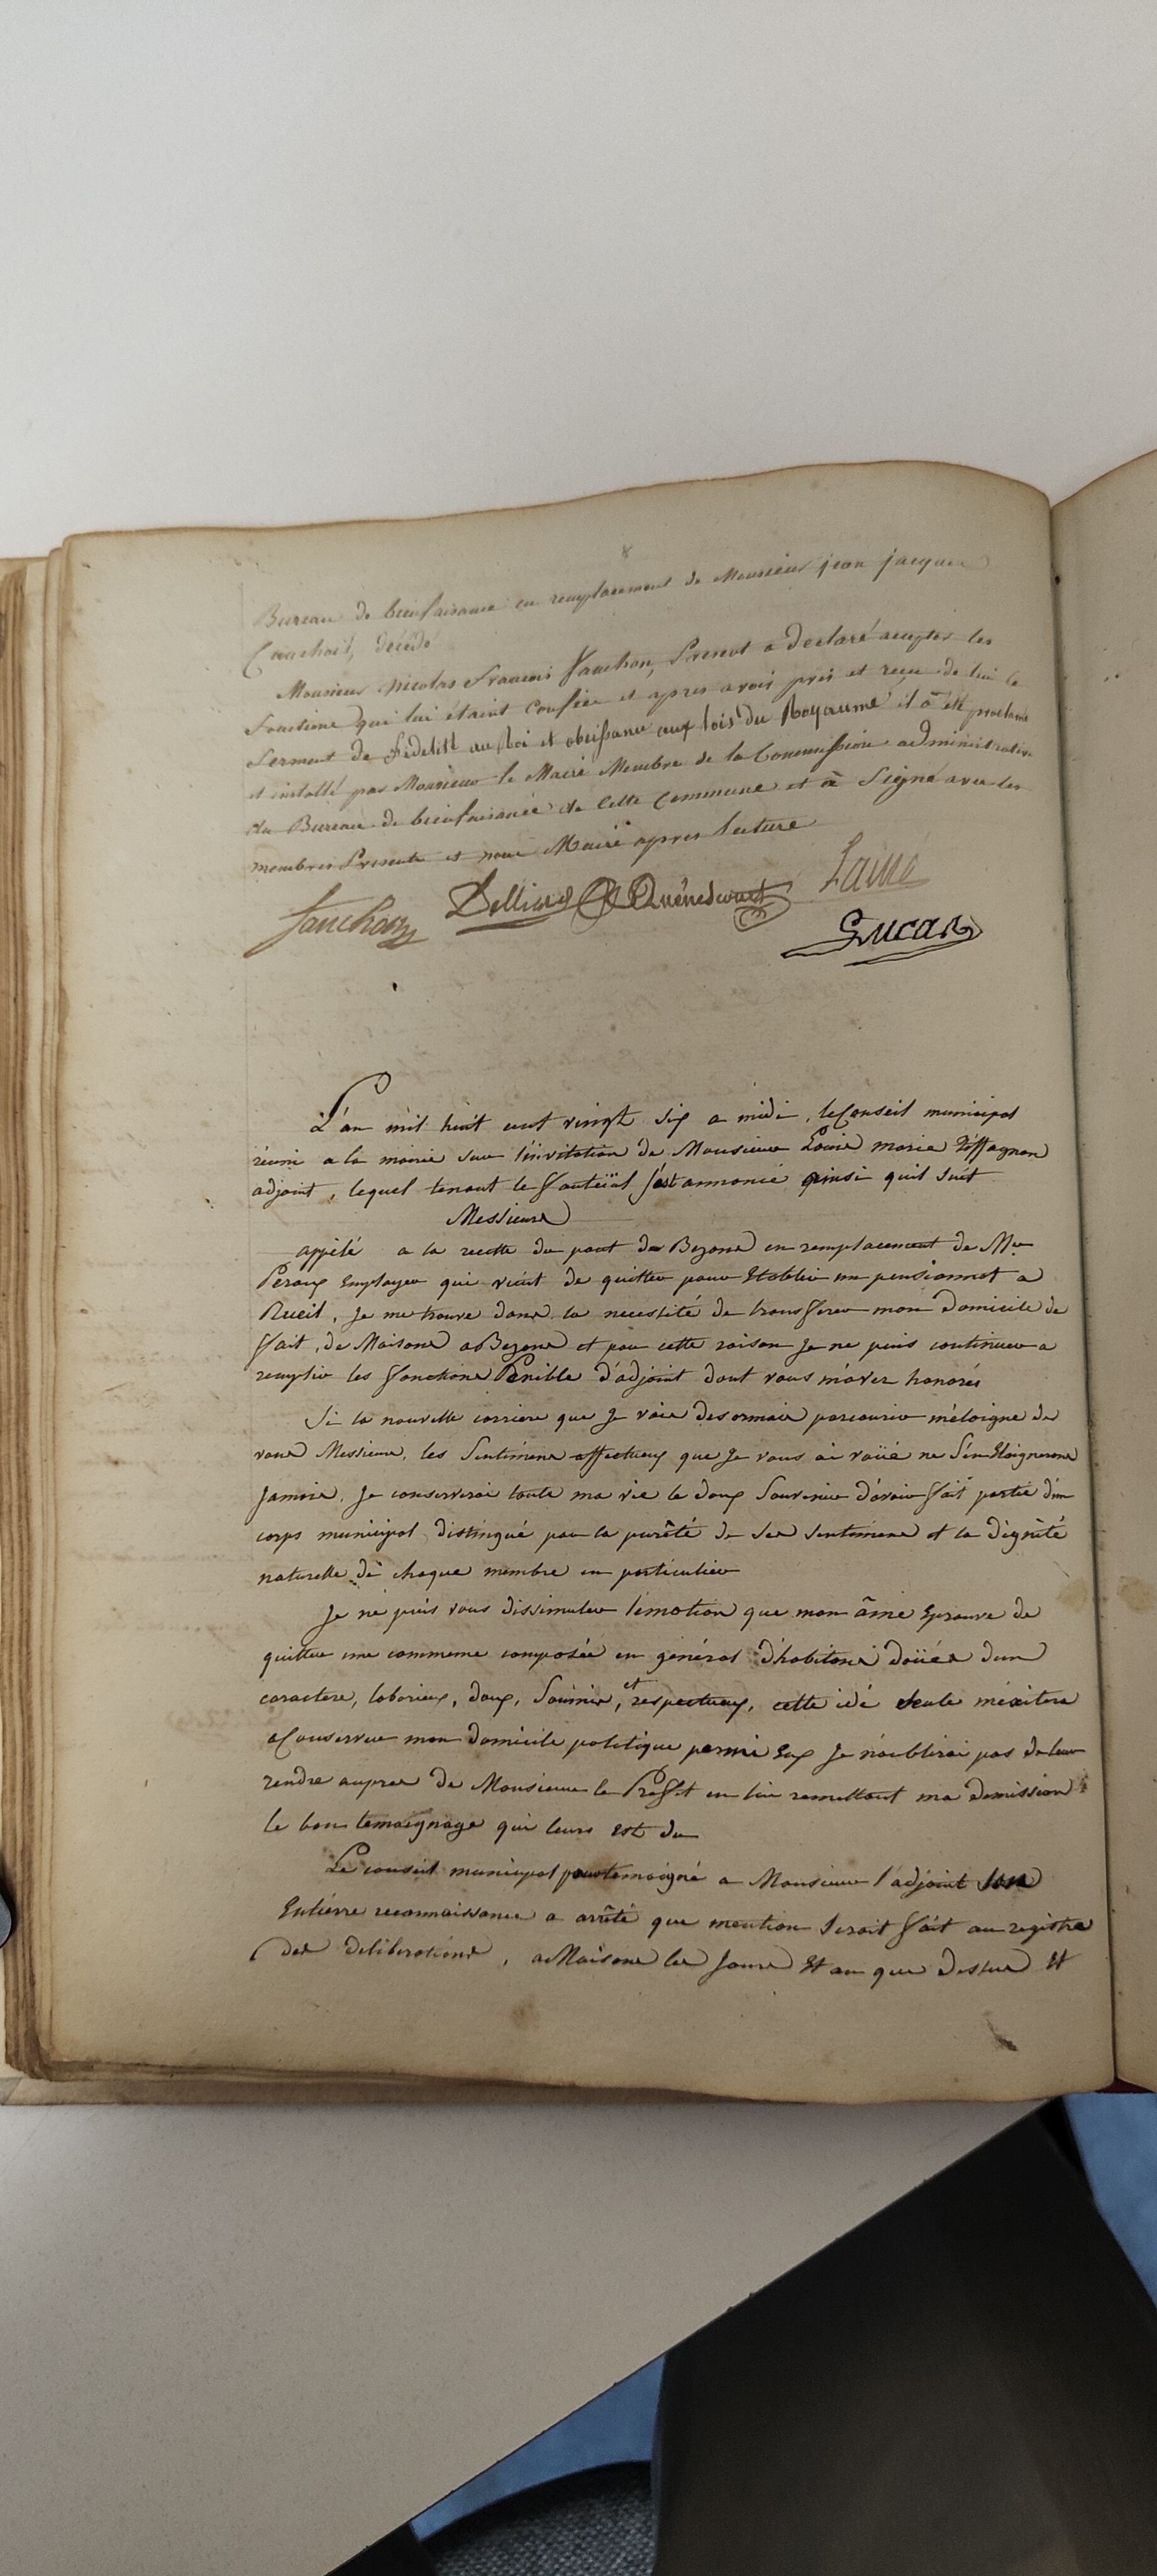 Bureau de bienfaisance en remplacement de Monsieur jean jacques
Cauchois, décédé
Monsieur Nicolas François Fauchon, Present a declaré accepter les
fonctions qui lui étaint Confiée et apres avois pris et reçu de lui le
Serment de fidelité au Roi et obeissance aux lois du Royaume il a été proclamé
et installé par Monsieur le Maire Membre de la Commission administrative
du Bureau de bienfaisance de Cette Commune et à Signé avec les
membres Presents et nous Maire apres lecture
Fauchon
Lainé
Lucas
L'an mil huit cent vingt six a midi, le Conseil municipal
réuni a la mairie sur l'invitation de Monsieur Louis marie
adjoint, lequel tenant le fauteüil s'est annoncé ainsi quil suit
Messieurs
appélé a la recette du pont de Bezons en remplacement de Mr
Employer qui vient de quitter pour Etablir un pensionnat a
Rueil, Je me trouve dans la necessité de transferer mon domicile de
fait, de Maisons a Bezons et par cette raison Je ne puis continuer a
remplir les fonctions Penible d'adjoint dont vous m'avez honorés
Si la nouvelle carriere que Je vais desormais parcourir m'éloigne de
vous Messieurs, les Sentimens affectueux que Je vous ai voüé ne S'en Eloigneront
Jamais. Je conserverai toute ma vie le doux Souvenir d'avoir fait partie d'un
corps municipal distingué par la purêté de ses sentimens et la dignité
naturelle de chaque membre en particulier
Je ne puis vous dissimuler l'émotion que mon âme Eprouve de
quitter une commune composée en général d'habitans doüés d'un
caractere, laborieux, doux, Soumis, et respectueux, cette idé seule m'éxitera
a Conserver mon domicile politique parmi Eux Je n'oublirai pas de leur
rendre aupres de Monsieur le Prefet en lui remettant ma demission
le bon temoignage qui leurs est du
Le conseil municipal pour temoigné a Monsieur l'adjoint Son
Entiérre reconnaissance a arrêté que mention Serait fait au registre
des deliberations, a Maisons les Jours Et an que dessus Et